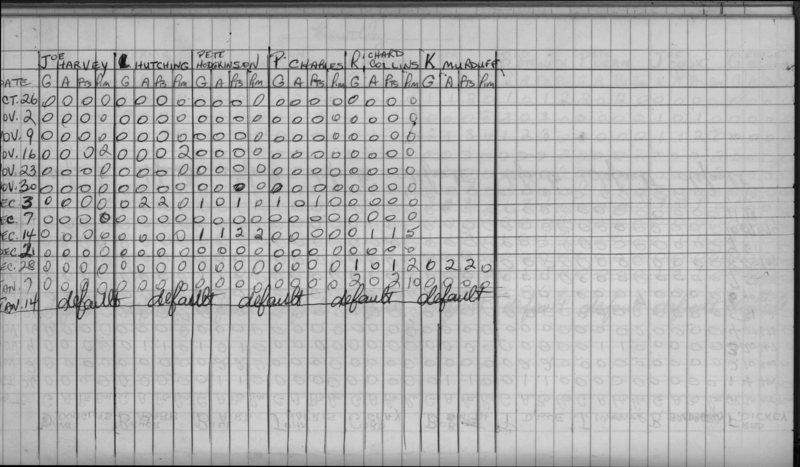 JOE HARVEY L HUTCHING PETE HODGKINSON P CHARLES RICHARD COLLINS K MURDUFF
DATE G A Pts Pim G A Pts Pim G A Pts Pim G A Pts Pim G A Pts Pim G A Pts Pim
CT. 26 0 0 0 0 0 0 0 0 0 0 0 0 0 0 0 0 0 0 0 0
OV. 2 0 0 0 0 0 0 0 0 0 0 0 0 0 0 0 0 0 0 0 0
OV. 9 0 0 0 0 0 0 0 0 0 0 0 0 0 0 0 0 0 0 0 0
OV. 16 0 0 0 2 0 0 0 2 0 0 0 0 0 0 0 0 0 0 0 0
OV. 23 0 0 0 0 0 0 0 0 0 0 0 0 0 0 0 0 0 0 0 0
OV. 30 0 0 0 0 0 0 0 0 0 0 0 0 0 0 0 0 0 0 0 0
EC. 3 0 0 0 0 0 2 2 0 1 0 1 0 1 0 1 0 0 0 0 0
EC. 7 0 0 0 0 0 0 0 0 0 0 0 0 0 0 0 0 0 0 0 0
EC. 14 0 0 0 0 0 0 0 0 1 1 2 2 0 0 0 0 0 1 1 5
DEC. 21 0 0 0 0 0 0 0 0 0 0 0 0 0 0 0 0 0 0 0 0
EC. 28 0 0 0 0 0 0 0 0 0 0 0 0 0 0 0 0 1 0 1 2 0 2 2 0
AN. 7 0 0 0 0 0 0 0 0 0 0 0 0 0 0 0 0 2 0 2 10 0 0 0 0
JAN. 14 default default default default default